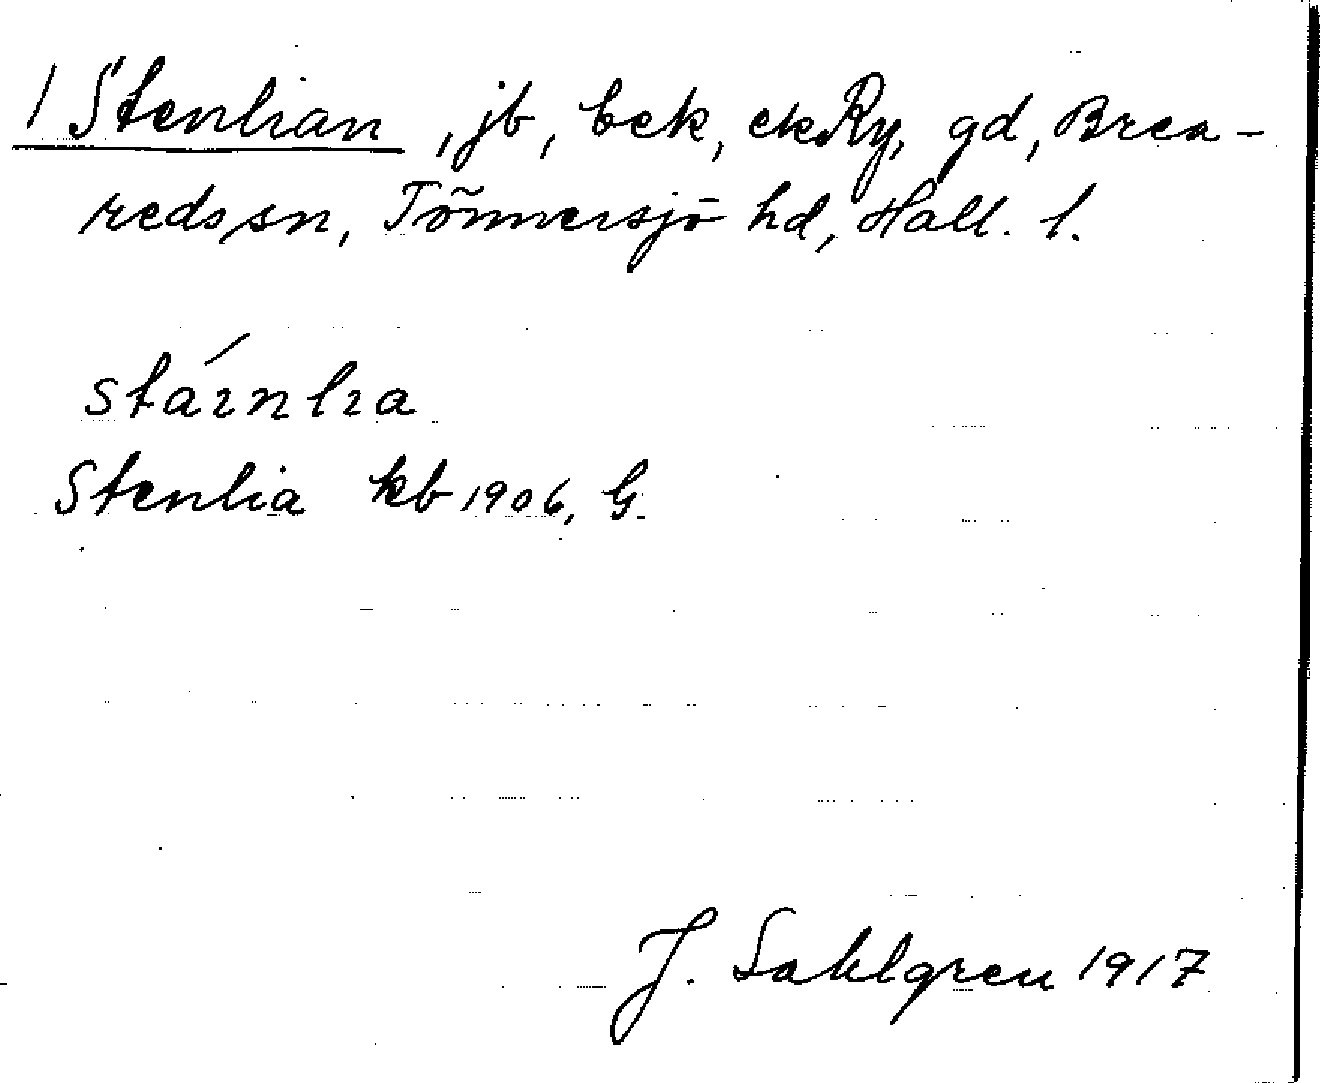 1 Stenlian, jb, bck, ck Ry, gd, Brea-
reds sn, Tönnersjö hd, Hall. l.
stáɪnlɪa
Stenlia kb 1906, G.
J. Sahlgren 1917